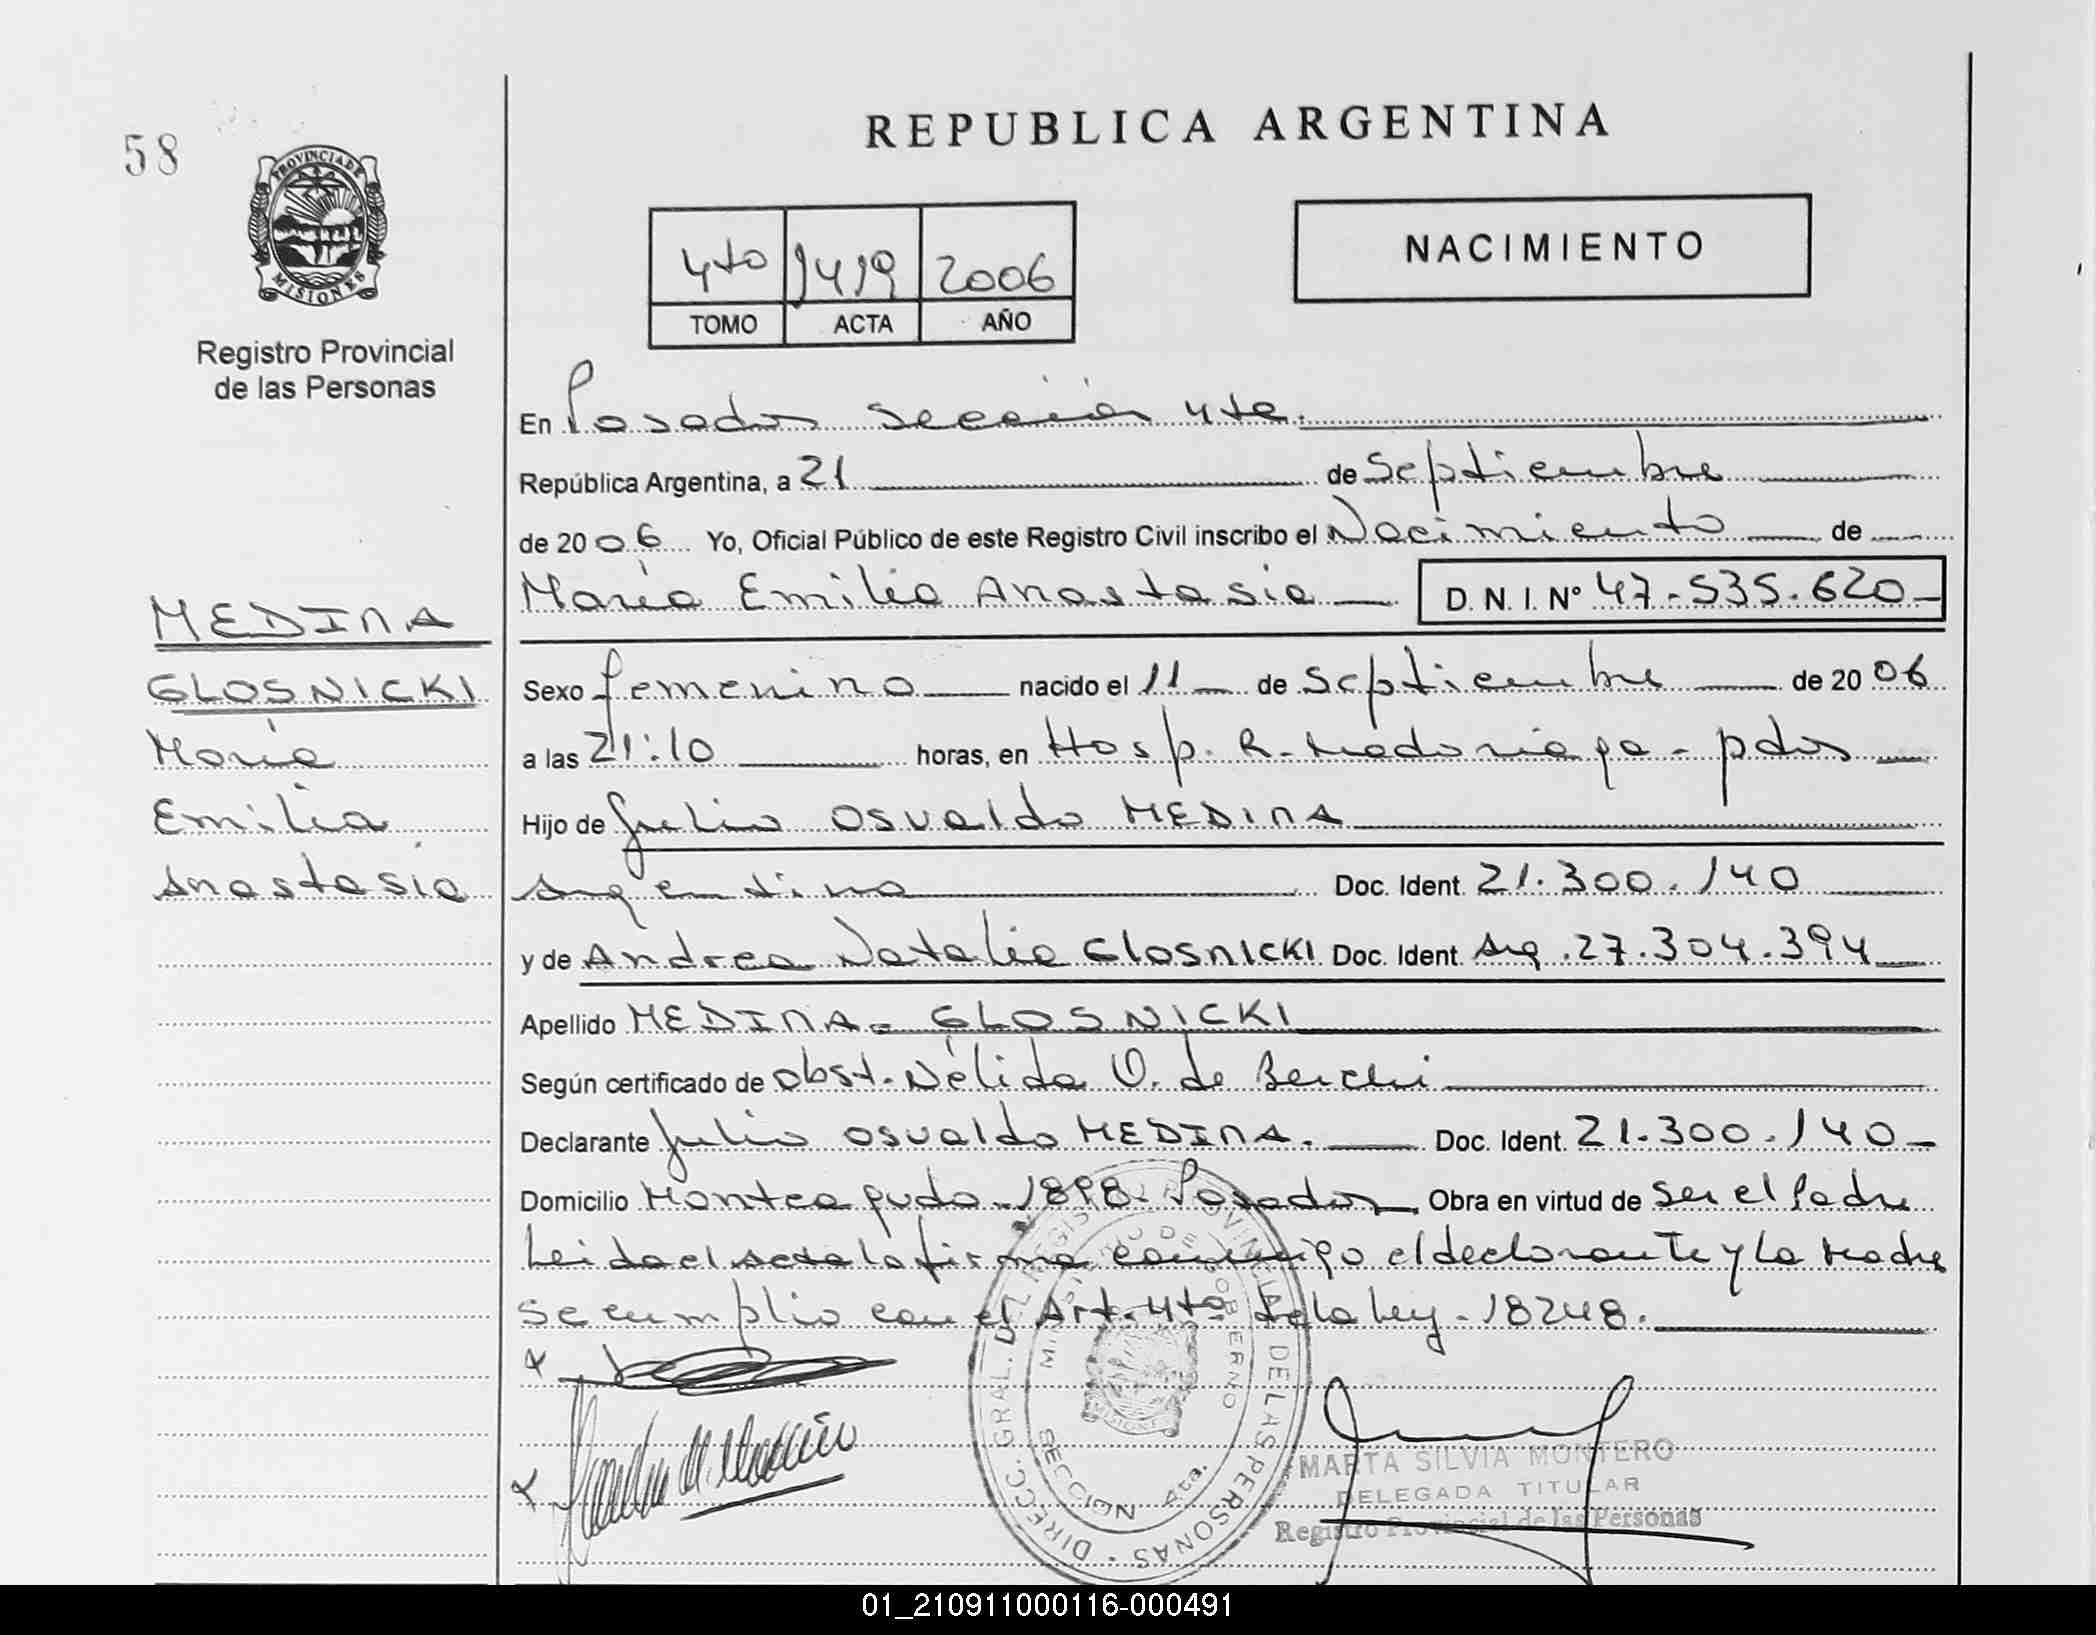 58
PROVINCIA DE
MISIONES
Registro Provincial
de las Personas
MEDINA
GLOSNICKI
María
Emilia
Anastasia
REPUBLICA ARGENTINA
4to 1419 2006
TOMO ACTA AÑO
NACIMIENTO
En Posadas Sección 4ta.
República Argentina, a 21 de Septiembre
de 2006 Yo, Oficial Público de este Registro Civil inscribo el Nacimiento de
María Emilia Anastasia D. N. I. N° 47.535.620
Sexo femenino nacido el 11 de Septiembre de 2006
a las 21:10 horas, en Hosp. R. Madariaga - pdas
Hijo de Julio Osvaldo MEDINA
Argentino Doc. Ident. 21.300.140
y de Andrea Natalia GlosnICKI Doc. Ident. Arg. 27.304.394
Apellido MEDINA - GLOSNICKI
Según certificado de obst. Nélida O. de
Declarante Julio Osvaldo MEDINA. Doc. Ident. 21.300.140
Domicilio Monteagudo - 1898 - Posadas Obra en virtud de Ser el Padre
Leida el acta la firma conmigo el declarante y la Madre
Se cumplio con el Art. 4to de la ley - 18248.
DIRECC. GRAL. DEL REGISTRO PROVINCIAL DE LAS PERSONAS
MINISTERIO DE GOBIERNO
SECCION 4ta.
MARTA SILVIA MONTERO
DELEGADA TITULAR
Registro Provincial de las Personas
01_210911000116-000491